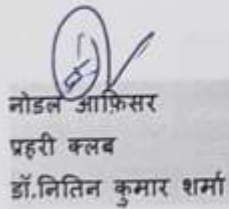 नोडल ऑफ़िसर
प्रहरी क्लब
डॉ.नितिन कुमार शर्मा